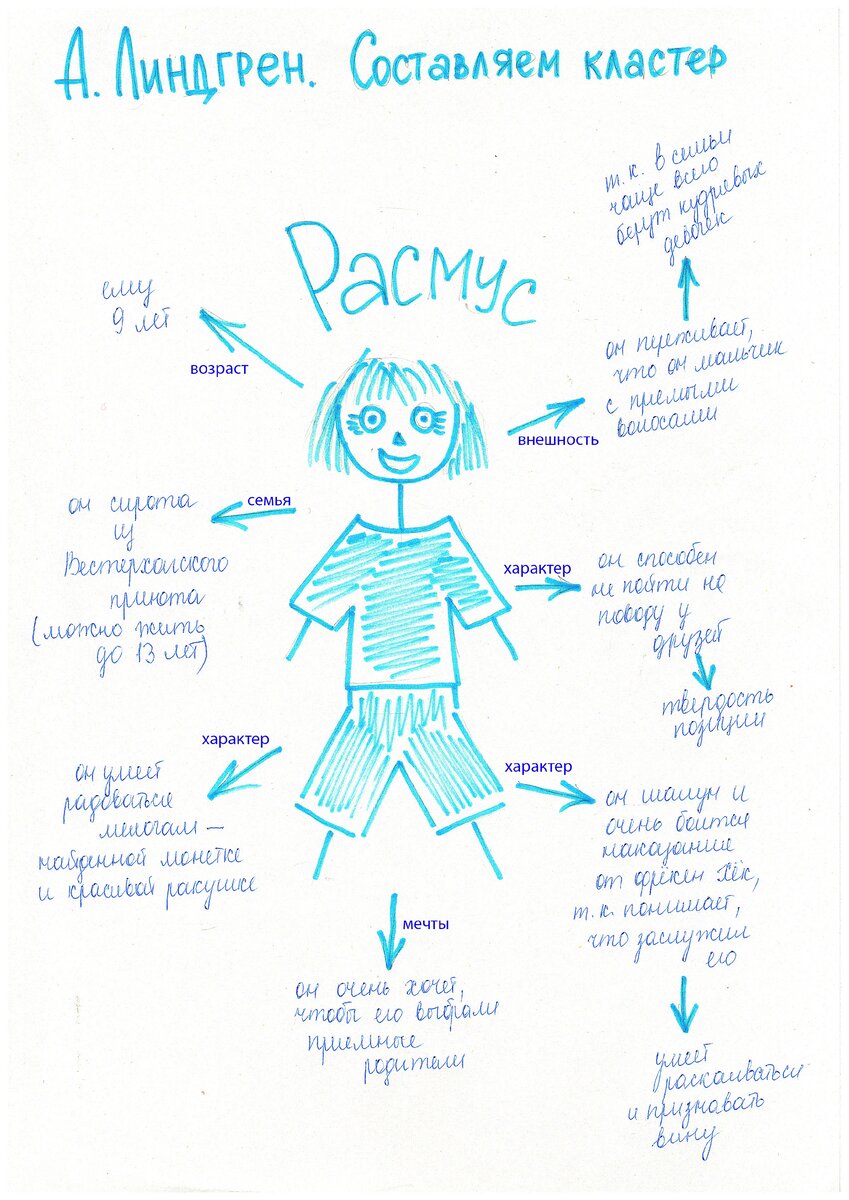 А. Линдгрен. Составляем кластер
Расмус
ему
9 лет
возраст
т.к. в семьи
чаще всего
берут кудрявых
девочек
он переживает,
что он мальчик
с прямыми
волосами
внешность
семья
он сирота
из
Вестерхагского
приюта
(можно жить
до 13 лет)
характер
он способен
не пойти на
поводу у
друзей
твердость
позиции
характер
он умеет
радоваться
мелочам —
найденной монетке
и красивой ракушке
характер
он шалун и
очень боится
наказание
от фрёкен Хёк,
т.к. понимает,
что заслужил
его
умеет
раскаиваться
и признавать
вину
мечты
он очень хочет,
чтобы его выбрали
приемные
родители